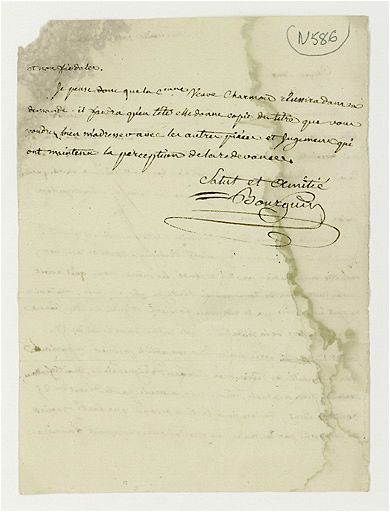 N586
et non féodales.
Je pense donc que la cenne Veuve Charmon réussira dans sa
demande. il faudra qu'en tête elle donne copie du titre que vous
voudrez bien m'adresser avec les autres pièces et Jugement qui
ont maintenu la perception de la redevance.
Salut et Amitié
Bourguin